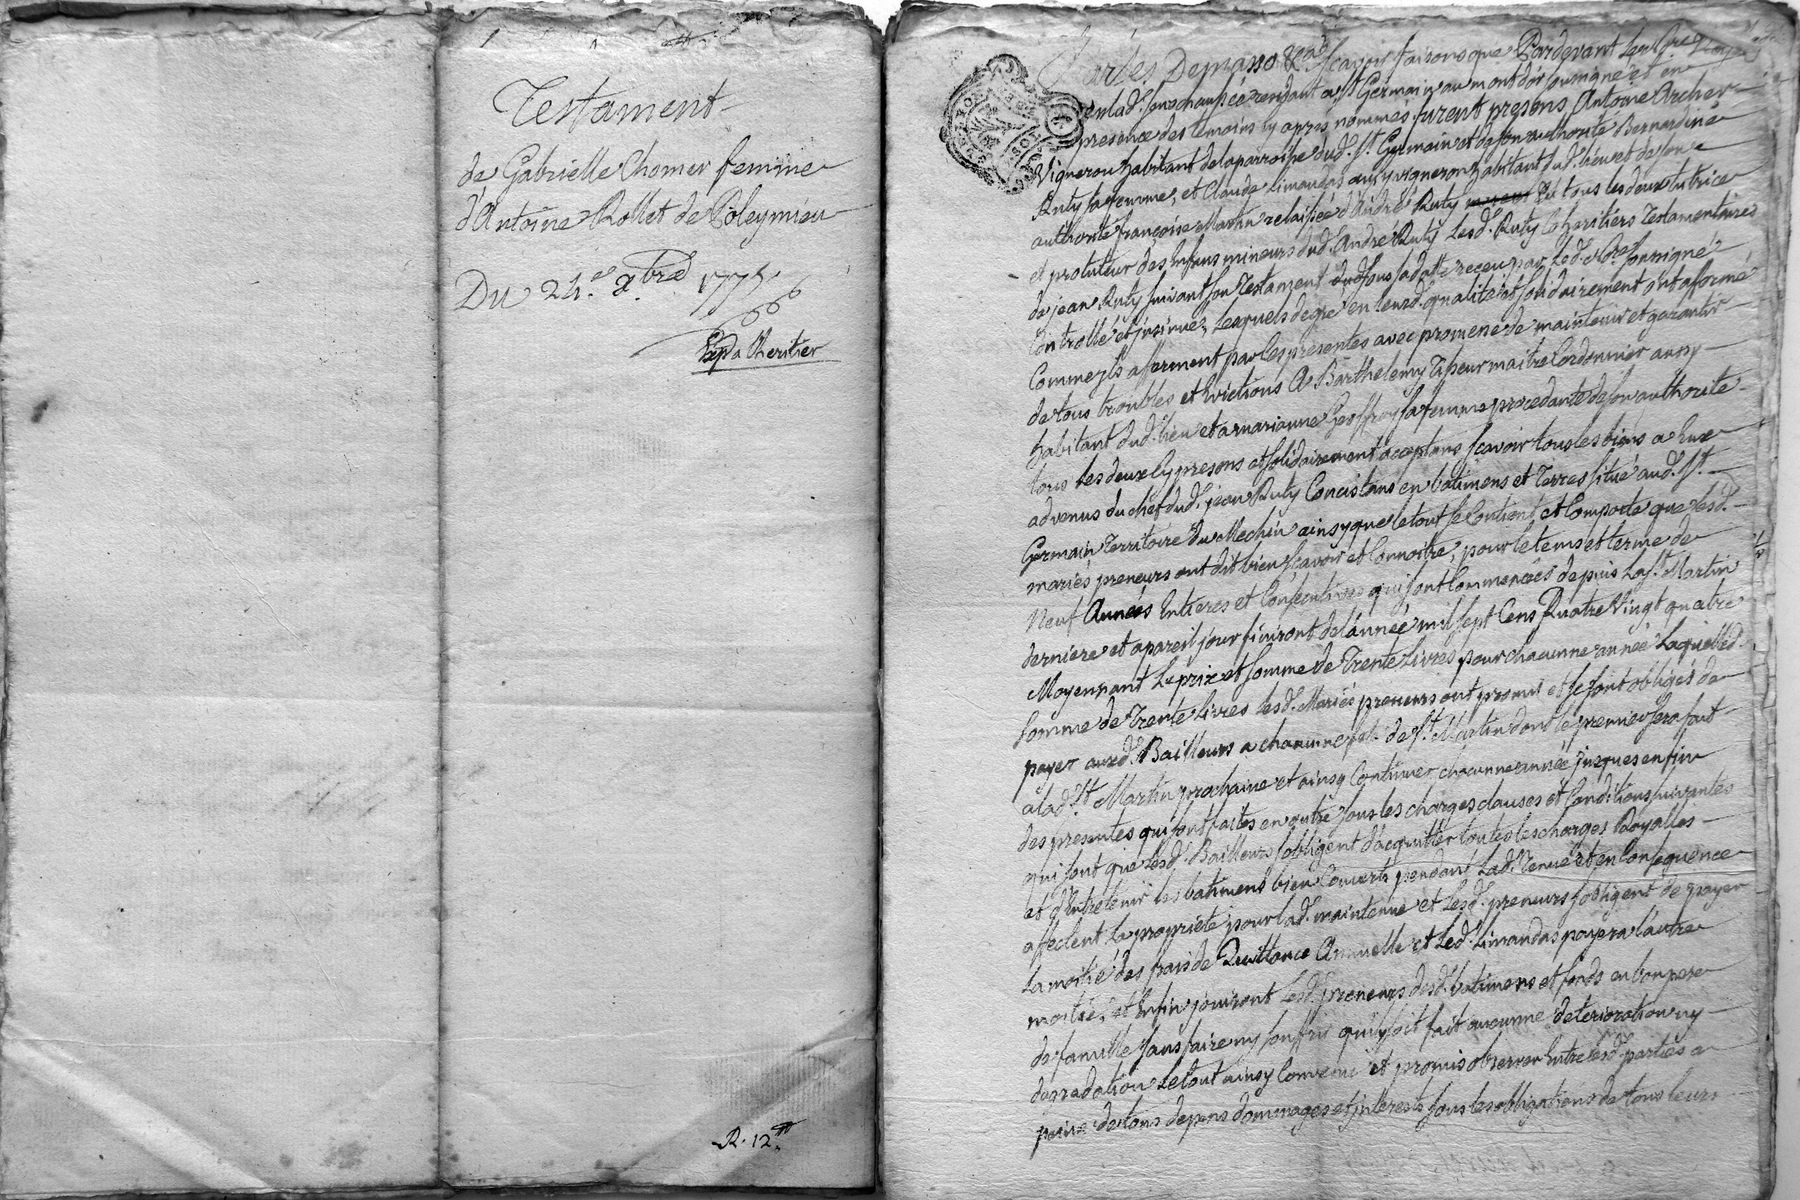 Testament
de Gabrielle Chomer femme
d'Antoine Rollet de Poleymieu
Du 24.e xbre 1775.
Exp a Lheritier
R. 12.tt
Charles Demasso &a sçavoir faisons que Pardevant Les Nres
enlad. senechaussée residant a St Germain au montdor soussigné et en
presence des temoins cy apres nommés furent presens Antoine Archer
Vigneron habitant de la parroisse dud. St Germain et de son authorité Bernardine
Ruty sa femme, et Claude Limandas aussy vigneron habitant dud. lieu et de son
authorité françoise Martin relaissée d'André Ruty Et tous les deux tutrice
et protuteur des Enfans mineurs dud. André Ruty Lesd. Ruty Coheritiers Testamentaires
de jean Ruty suivant son Testament sous sa datte receu par Led. Nre soussigné
Controllé et insinué, Lesquels de gré en leursd. qualités et solidairement ont affermé
Comme jls afferment par les presentes avec promesse de maintenir et garantir
de tous troubles et Evictions A Barthelemy Tisseur maitre Cordonnier aussy
habitant dud. lieu et a marianne Geoffroy sa femme procedante de son authorité
tous les deux Cy presens et solidairement acceptans sçavoir tous les biens a Eux
advenus du chef dud. jean Ruty Concistans en batimens et Terres situé aud. St
Germain Territoire du Mechin ainsy que le tout se Contient et Comporte que lesd.
mariés preneurs ont dit bien sçavoir et Connoitre, pour le tems et terme de
Neuf Années Entieres et Consecutives qui sont Commencées depuis La St Martin
derniere et a pareil jour finiront de l'année mil sept Cens Quatre Vingt quatre
Moyennant Le prix et somme de Trente Livres pour chacunne année Laquelle d.
somme de Trente Livres Lesd. Mariés preneurs ont promis et se sont obligés de
payer auxd. Bailleurs a chacunne fete de St Martin dont le premier sera fait
a lad. St Martin prochaine et ainsy Continuer chacunne année jusques en fin
des presentes qui sont faites en outre sous les charges clauses et Conditions suivantes
qui sont que Lesd. Bailleurs s'obligent d'acquitter toutes les charges Royalles
et d'Entretenir les batimens bien Couverts pendant Lad. Tenue et en Consequence
affectent La proprieté pour lad. maintenue et Lesd. preneurs s'obligent de payer
La moitié des frais de Quittance Annuelle et Led. Limandas payera l'autre
moitié, Et Enfin jouiront Lesd. preneurs desd. batimens et fonds en bon pere
de famille sans faire ny souffrir qu'il y soit fait aucunne deterioration ny
degradation Le tout ainsy Convenu et promis observer Entre lesd. parties a
peine de tous depens dommages et jnterests sous les obligations de tous leurs